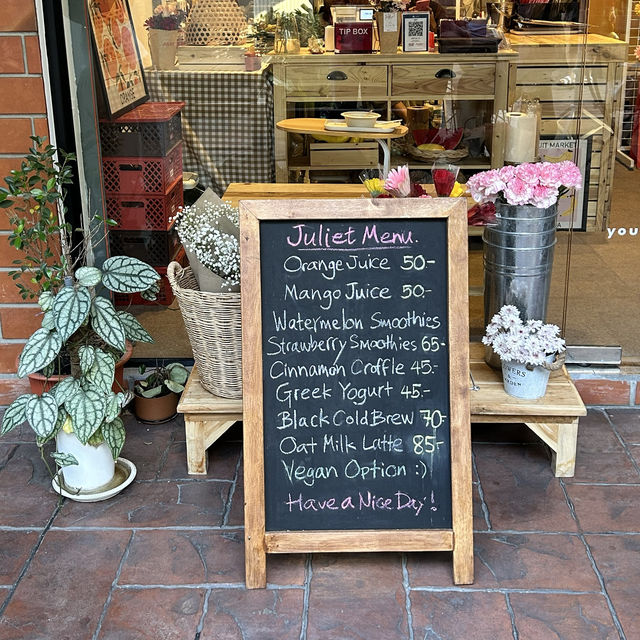 TIP BOX
ORANGE
UIT MARKET
you
Juliet Menu.
Orange Juice 50.-
Mango Juice 50.-
Watermelon Smoothies
Strawberry Smoothies 65-
Cinnamon Croffle 45.-
Greek Yogurt 45.-
Black Cold Brew 70-
Oat Milk Latte 85.-
Vegan Option :)
Have a Nice Day!